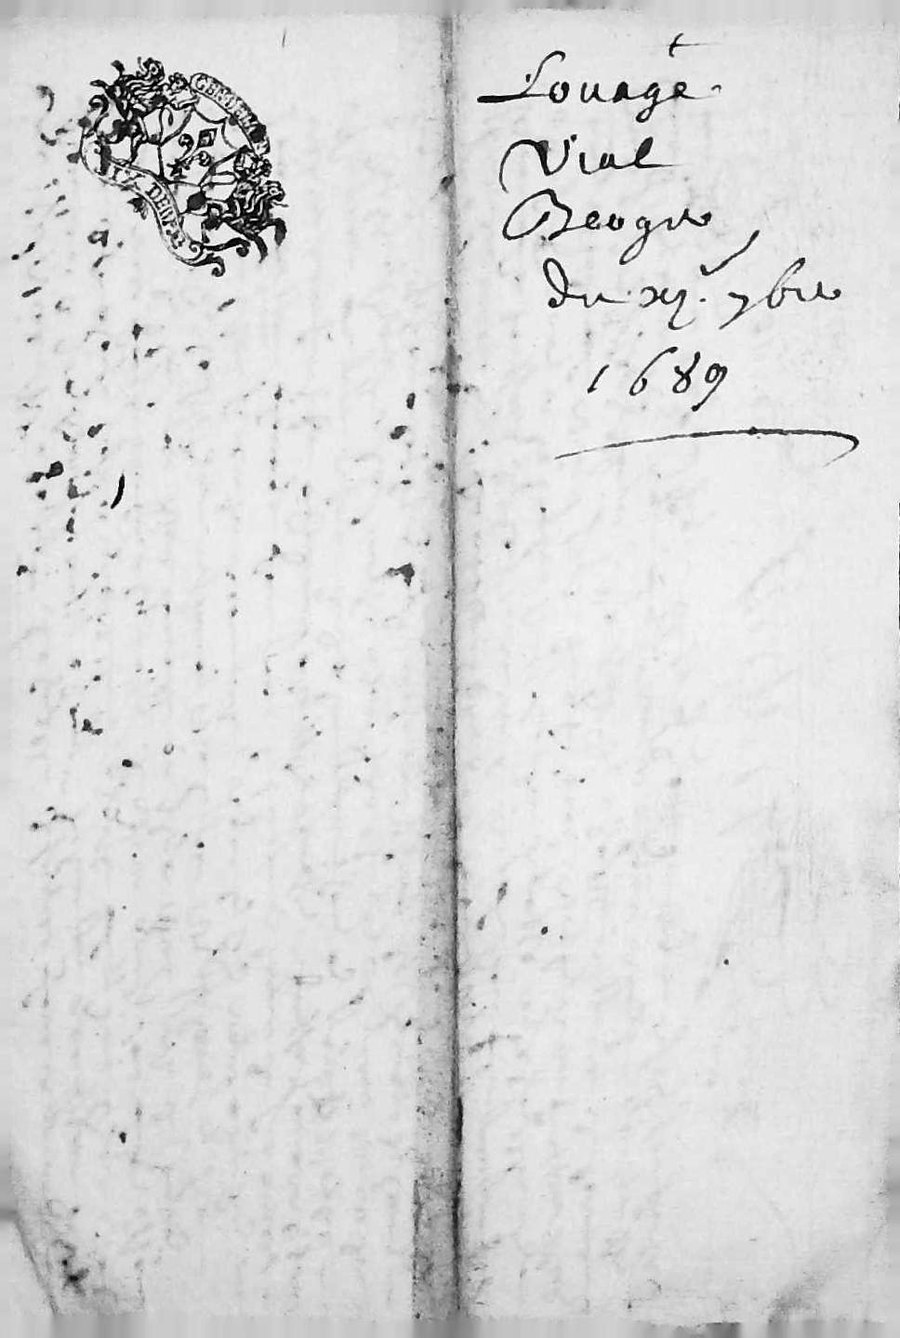 GEN
SIX DENIERS
Louage
Vial
Beogie
du xj. 7bre
1689